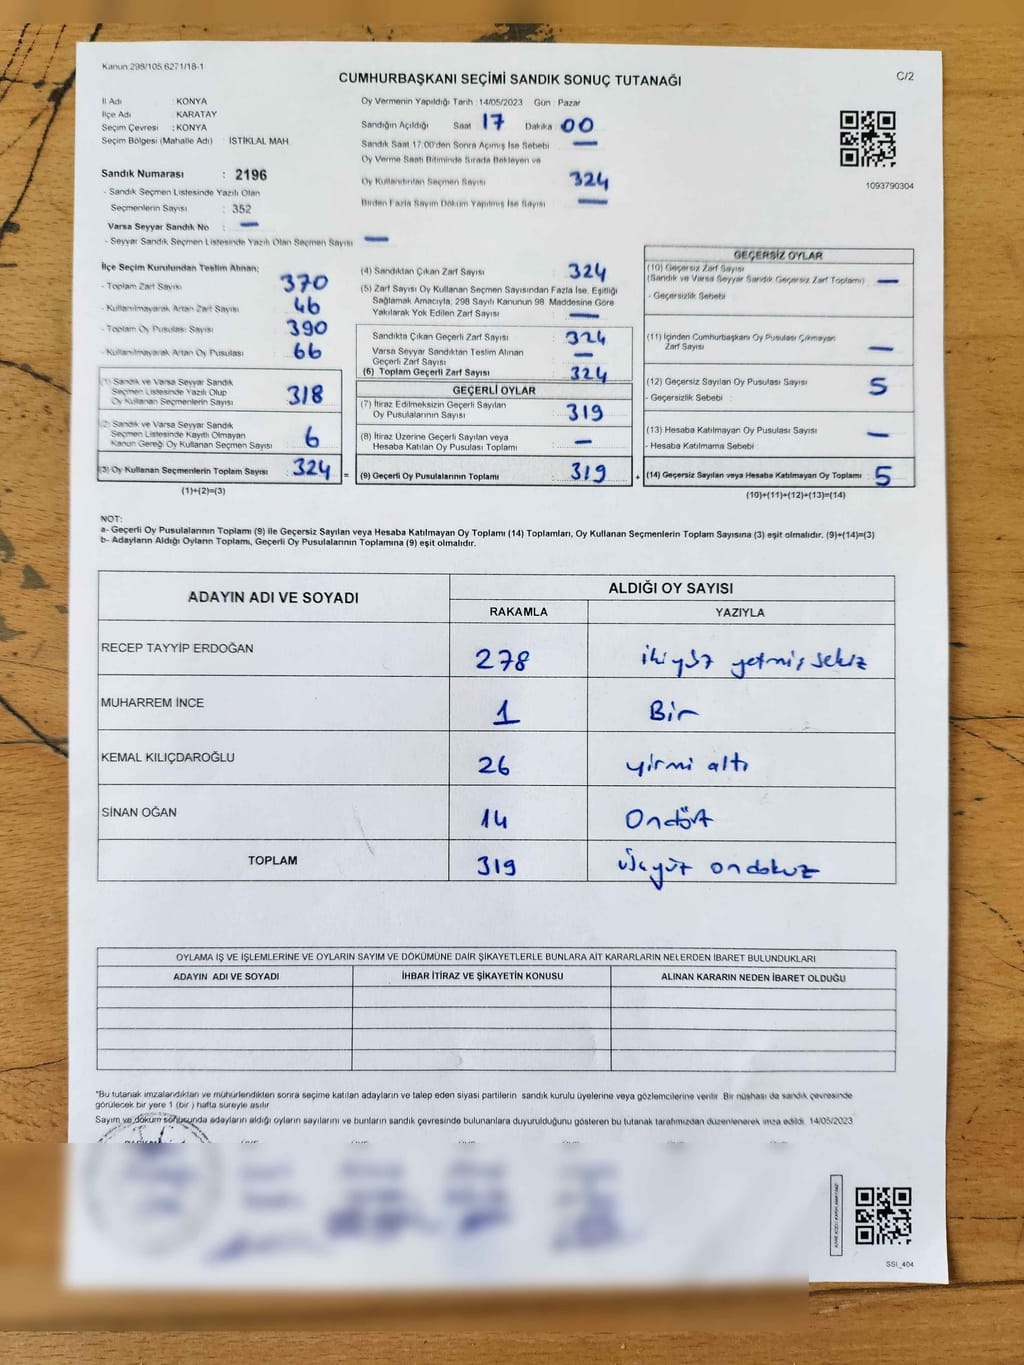 Kanun:298/105.6271/18-1
CUMHURBAŞKANI SEÇİMİ SANDIK SONUÇ TUTANAĞI
C/2
İl Adı : KONYA
İlçe Adı : KARATAY
Seçim Çevresi : KONYA
Seçim Bölgesi (Mahalle Adı) : İSTİKLAL MAH.
Sandık Numarası : 2196
- Sandık Seçmen Listesinde Yazılı Olan
Seçmenlerin Sayısı : 352
Varsa Seyyar Sandık No : —
- Seyyar Sandık Seçmen Listesinde Yazılı Olan Seçmen Sayısı —
Oy Vermenin Yapıldığı Tarih : 14/05/2023 Gün : Pazar
Sandığın Açıldığı Saat 17 Dakika 00
Sandık Saat 17:00'den Sonra Açılmış İse Sebebi —
Oy Verme Saati Bitiminde Sırada Bekleyen ve
Oy Kullandırılan Seçmen Sayısı 324
Birden Fazla Sayım Döküm Yapılmış İse Sayısı —
1093790304
İlçe Seçim Kurulundan Teslim Alınan;
- Toplam Zarf Sayısı 370
- Kullanılmayarak Artan Zarf Sayısı 46
- Toplam Oy Pusulası Sayısı 390
- Kullanılmayarak Artan Oy Pusulası 66
(1) Sandık ve Varsa Seyyar Sandık
Seçmen Listesinde Yazılı Olup
Oy Kullanan Seçmenlerin Sayısı 318
(2) Sandık ve Varsa Seyyar Sandık
Seçmen Listesinde Kayıtlı Olmayan
Kanun Gereği Oy Kullanan Seçmen Sayısı 6
(3) Oy Kullanan Seçmenlerin Toplam Sayısı 324 =
(1)+(2)=(3)
(4) Sandıktan Çıkan Zarf Sayısı 324
(5) Zarf Sayısı Oy Kullanan Seçmen Sayısından Fazla İse, Eşitliği
Sağlamak Amacıyla, 298 Sayılı Kanunun 98. Maddesine Göre
Yakılarak Yok Edilen Zarf Sayısı —
Sandıkta Çıkan Geçerli Zarf Sayısı 324
Varsa Seyyar Sandıktan Teslim Alınan
Geçerli Zarf Sayısı —
(6) Toplam Geçerli Zarf Sayısı 324
GEÇERLİ OYLAR
(7) İtiraz Edilmeksizin Geçerli Sayılan
Oy Pusulalarının Sayısı 319
(8) İtiraz Üzerine Geçerli Sayılan veya
Hesaba Katılan Oy Pusulası Toplamı —
(9) Geçerli Oy Pusulalarının Toplamı 319 +
GEÇERSİZ OYLAR
(10) Geçersiz Zarf Sayısı
(Sandık ve Varsa Seyyar Sandık Geçersiz Zarf Toplamı) —
- Geçersizlik Sebebi
(11) İçinden Cumhurbaşkanı Oy Pusulası Çıkmayan
Zarf Sayısı —
(12) Geçersiz Sayılan Oy Pusulası Sayısı 5
- Geçersizlik Sebebi :
(13) Hesaba Katılmayan Oy Pusulası Sayısı —
- Hesaba Katılmama Sebebi :
(14) Geçersiz Sayılan veya Hesaba Katılmayan Oy Toplamı 5
(10)+(11)+(12)+(13)=(14)
NOT:
a- Geçerli Oy Pusulalarının Toplamı (9) ile Geçersiz Sayılan veya Hesaba Katılmayan Oy Toplamı (14) Toplamları, Oy Kullanan Seçmenlerin Toplam Sayısına (3) eşit olmalıdır. (9)+(14)=(3)
b- Adayların Aldığı Oyların Toplamı, Geçerli Oy Pusulalarının Toplamına (9) eşit olmalıdır.
ADAYIN ADI VE SOYADI
ALDIĞI OY SAYISI
RAKAMLA YAZIYLA
RECEP TAYYİP ERDOĞAN 278 ikiyüz yetmiş sekiz
MUHARREM İNCE 1 Bir
KEMAL KILIÇDAROĞLU 26 yirmi altı
SİNAN OĞAN 14 Ondört
TOPLAM 319 Üçyüz ondokuz
OYLAMA İŞ VE İŞLEMLERİNE VE OYLARIN SAYIM VE DÖKÜMÜNE DAİR ŞİKAYETLERLE BUNLARA AİT KARARLARIN NELERDEN İBARET BULUNDUKLARI
ADAYIN ADI VE SOYADI İHBAR İTİRAZ VE ŞİKAYETİN KONUSU ALINAN KARARIN NEDEN İBARET OLDUĞU
*Bu tutanak imzalandıktan ve mühürlendikten sonra seçime katılan adayların ve talep eden siyasi partilerin sandık kurulu üyelerine veya gözlemcilerine verilir. Bir nüshası da sandık çevresinde
görülecek bir yere 1 (bir) hafta süreyle asılır.
Sayım ve döküm sonucunda adayların aldığı oyların sayılarını ve bunların sandık çevresinde bulunanlara duyurulduğunu gösteren bu tutanak tarafımızdan düzenlenerek imza edildi. 14/05/2023
SSI_404